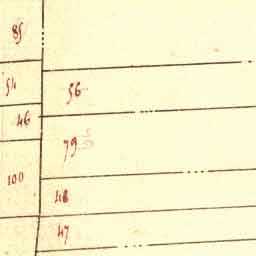 85
54
56
46
79
100
48
47